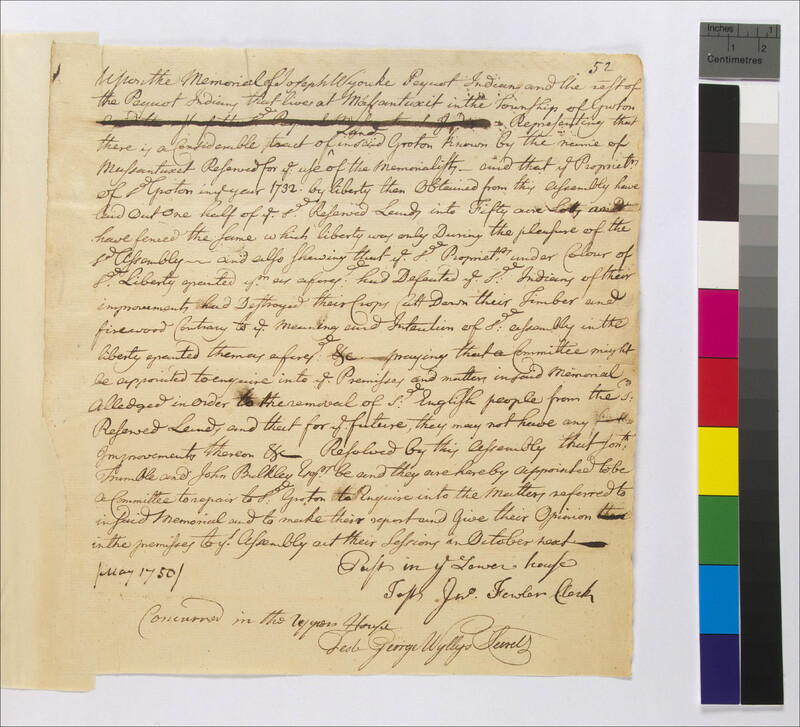 52
Upon the Memorial of Joseph Wyouke Pequot Indian and the rest of
the Pequot Indians that lives at Massantuxit in the Township of Groton
Representing that
there is a Considerable tract of Land in said Groton known by the name of
Mussantuxet Reserved for ye use of the Memorialists — and that ye Propriets
of sd Groton in ye year 1732. by liberty then Obtained from this Assembly have
laid out One half of ye sd Reserved Lands into Fifty acre Lots and
have fenced the same which liberty was only During the pleasure of the
sd Assembly — and also Shewing that ye sd Propriets under Colour of
sd Liberty granted ym as aforesd had Defeated ye sd Indians of their
improvements had Destroyed their Crops Cutt Down their Timber and
firewood Contrary to ye meaning and Intention of sd assembly in the
liberty granted them as aforesd &c — praying that a Committee might
be appointed to enquire into ye Premisses and matters in said Memorial
Alledged in order to the removal of sd English people from the sd
Reserved Lands, and that for ye future, they may not have any
Improvements thereon &c — Resolved by this Assembly that Jonth
Trumble and John Bulkley Esqrs be and they are hereby appointed to be
a Committee to repair to sd Groton to Enquire into the Matters referred to
in said Memorial and to make their report and Give their Opinion
in the premises to ys Assembly at their Sessions in October next
/May 1750/ Past in ye Lower house
Test Jno. Fowler Clerk
Concurred in the Upper House
Test George Wyllys Secrety
Inches 1
1 2
Centimetres